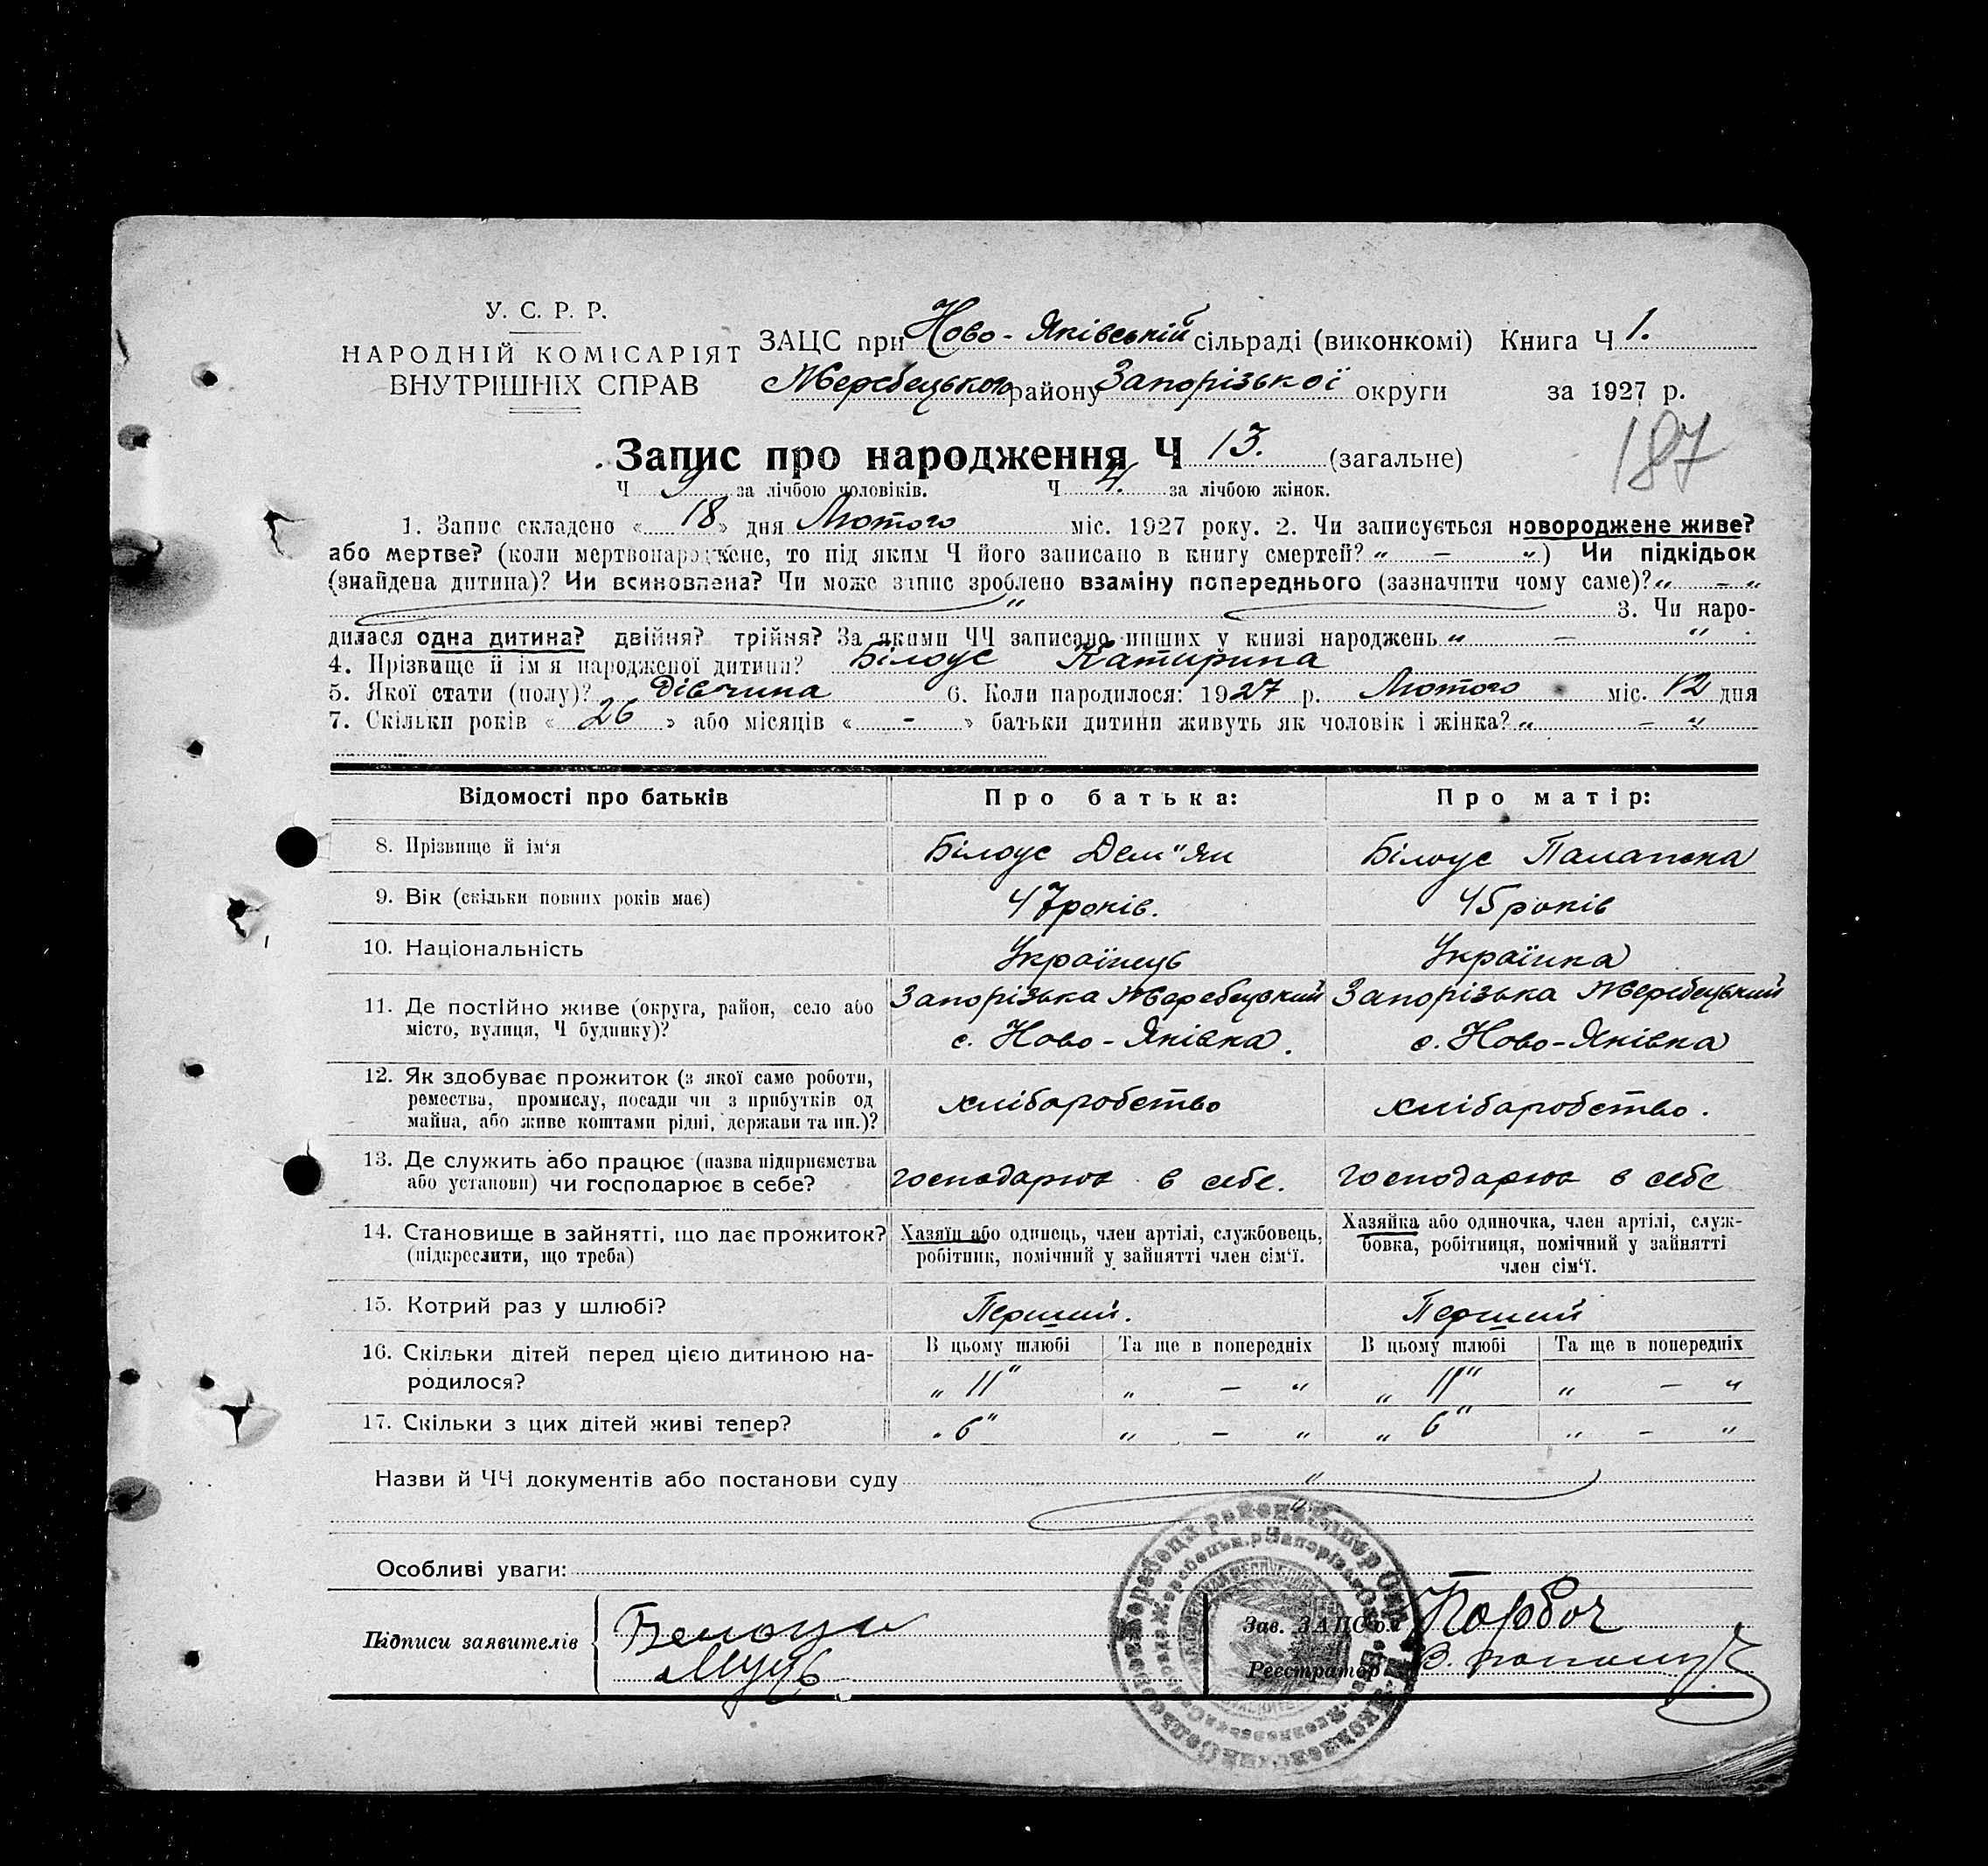 У. С. Р. Р.
НАРОДНІЙ КОМІСАРІЯТ
ВНУТРІШНІХ СПРАВ
ЗАЦС при Ново-Яківській сільраді (виконкомі) Книга Ч 1.
Жеребецького району Запорізької округи за 1927 р.
187
Запис про народження Ч 13. (загальне)
Ч 9 за лічбою чоловіків. Ч 4. за лічбою жінок.
1. Запис складено « 18 » дня Лютого міс. 1927 року. 2. Чи записується новороджене живе?
або мертве? (коли мертвонароджене, то під яким Ч його записано в книгу смертей? „ – “) Чи підкідьок
(знайдена дитина)? Чи всиновлена? Чи може запис зроблено взаміну попереднього (зазначити чому саме)? „ – “
„ 3. Чи наро-
дилася одна дитина? двійня? трійня? За якими ЧЧ записано инших у книзі народжень „ – “
4. Прізвище й ім'я народженої дитини? Білоус Катирина
5. Якої стати (полу)? Дівчина 6. Коли народилося: 1927 р. Лютого міс. 12 дня
7. Скільки років « 26 » або місяців « - » батьки дитини живуть як чоловік і жінка? „ – “
Відомості про батьків Про батька: Про матір:
8. Прізвище й ім'я Білоус Дем"ян Білоус Палашка
9. Вік (скільки повних років має) 47 років. 45 років
10. Національність Українець Українка
11. Де постійно живе (округа, район, село або Запорізька Жеребецький Запорізька Жеребецький
місто, вулиця, Ч будинку)? с. Ново-Яківка. с. Ново-Яківка
12. Як здобуває прожиток (з якої саме роботи,
ремества, промислу, посади чи з прибутків од хліборобство хліборобство.
майна, або живе коштами рідні, держави та ин.)?
13. Де служить або працює (назва підприємства господарює в себе. господарює в себе
або установи) чи господарює в себе?
14. Становище в зайнятті, що дає прожиток? Хазяїн або одинець, член артілі, службовець, Хазяйка або одиночка, член артілі, служ-
(підкреслити, що треба) робітник, помічний у зайнятті член сім'ї. бовка, робітниця, помічний у зайнятті
член сім'ї.
15. Котрий раз у шлюбі? Перший. Перший
16. Скільки дітей перед цією дитиною на- В цьому шлюбі Та ще в попередніх В цьому шлюбі Та ще в попередніх
родилося? „ 11 “ „ – “ „ 11 “ „ – “
17. Скільки з цих дітей живі тепер? „ 6 “ „ – “ „ 6 “ „ – “
Назви й ЧЧ документів або постанови суду „
Особливі уваги:
Підписи заявителів Зав. ЗАПСом
Реєстратор